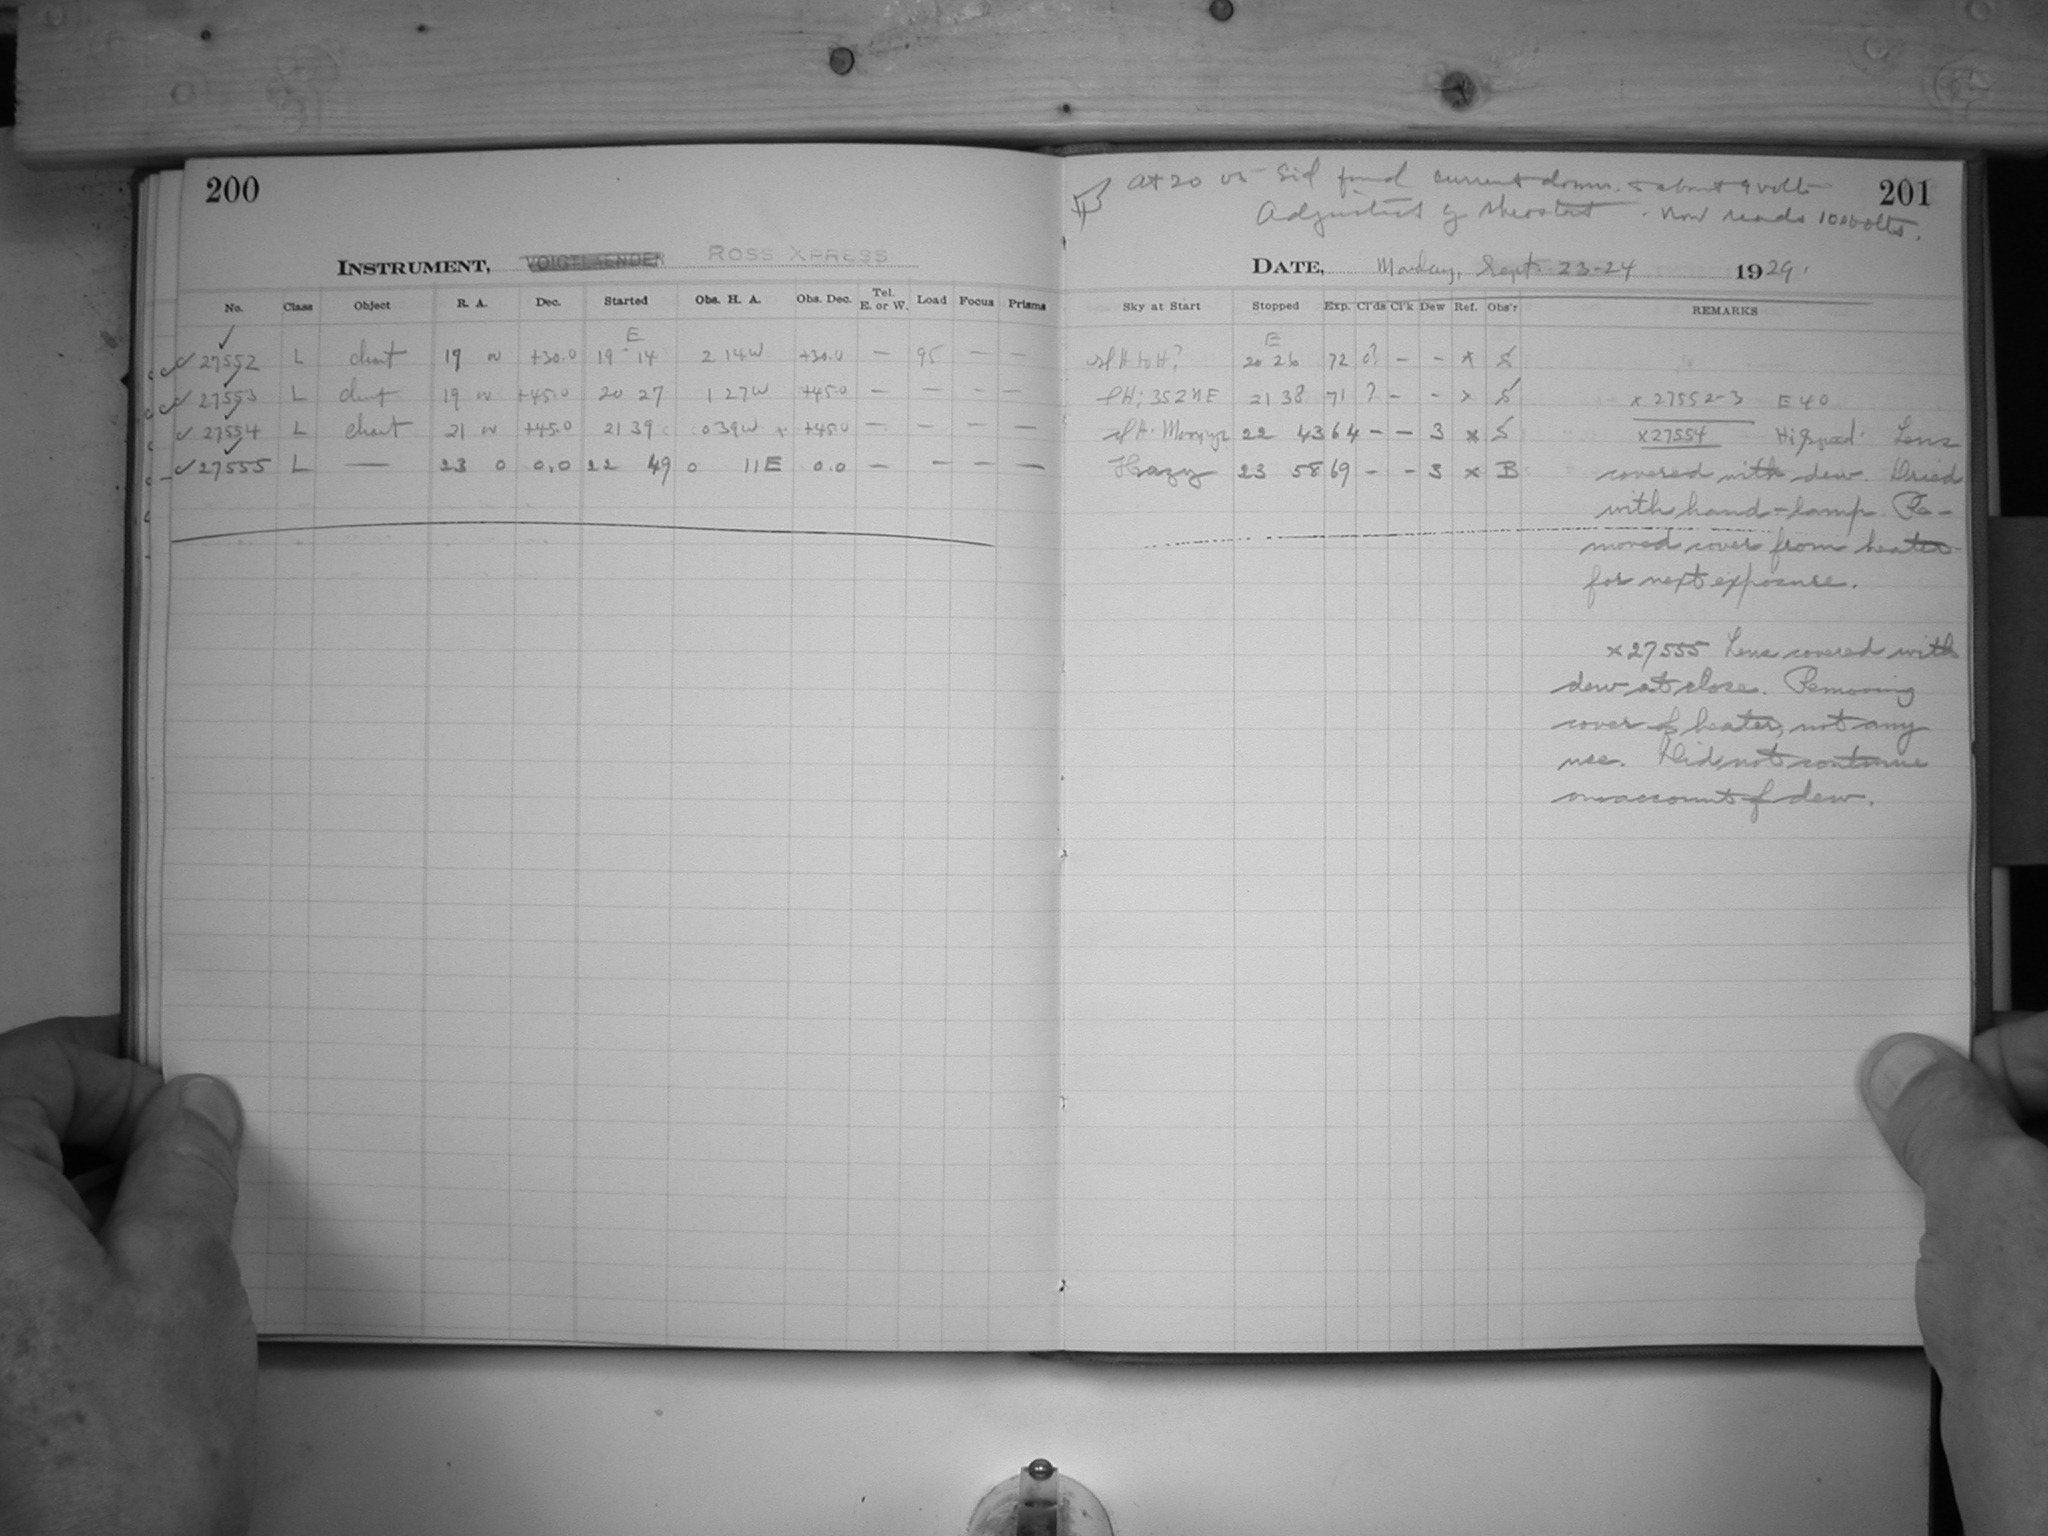 200
INSTRUMENT, VOIGTLAENDER ROSS XPRESS
No. Class Object R. A. Dec. Started Obs. H. A. Obs. Dec. Tel. E. or W. Load Focus Prisms
E
27552 L chart 19 +30.0 19 14 2 14W +30.0 — 95 — —
27553 L chart 19 +45.0 20 27 1 27W +45.0 — — — —
27554 L chart 21 +45.0 21 39 0 39W +45.0 — — — —
27555 L — 23 0 0.0 22 49 0 11E 0.0 — — — —
At 20 Sid found current down about 9 volts
Adjusted rheostat. Now reads 100 volts.
201
DATE, Monday, Sept 23-24 1929.
Sky at Start Stopped Exp. Cl'ds Cl'k Dew Ref. Obs'r REMARKS
E
H to H? 20 26 72 0? — — x S
352NE 21 38 71 ? — — x S x 27552-3 E40
22 43 64 — — 3 x S x27554 Hi speed. Lens
Hazy 23 58 69 — — 3 x B covered with dew. Dried
with hand-lamp. Re-
moved cover from heater
for next exposure.
x27555 Lens covered with
dew at close. Removing
cover of heater, not any
use. Did not continue
on account of dew.